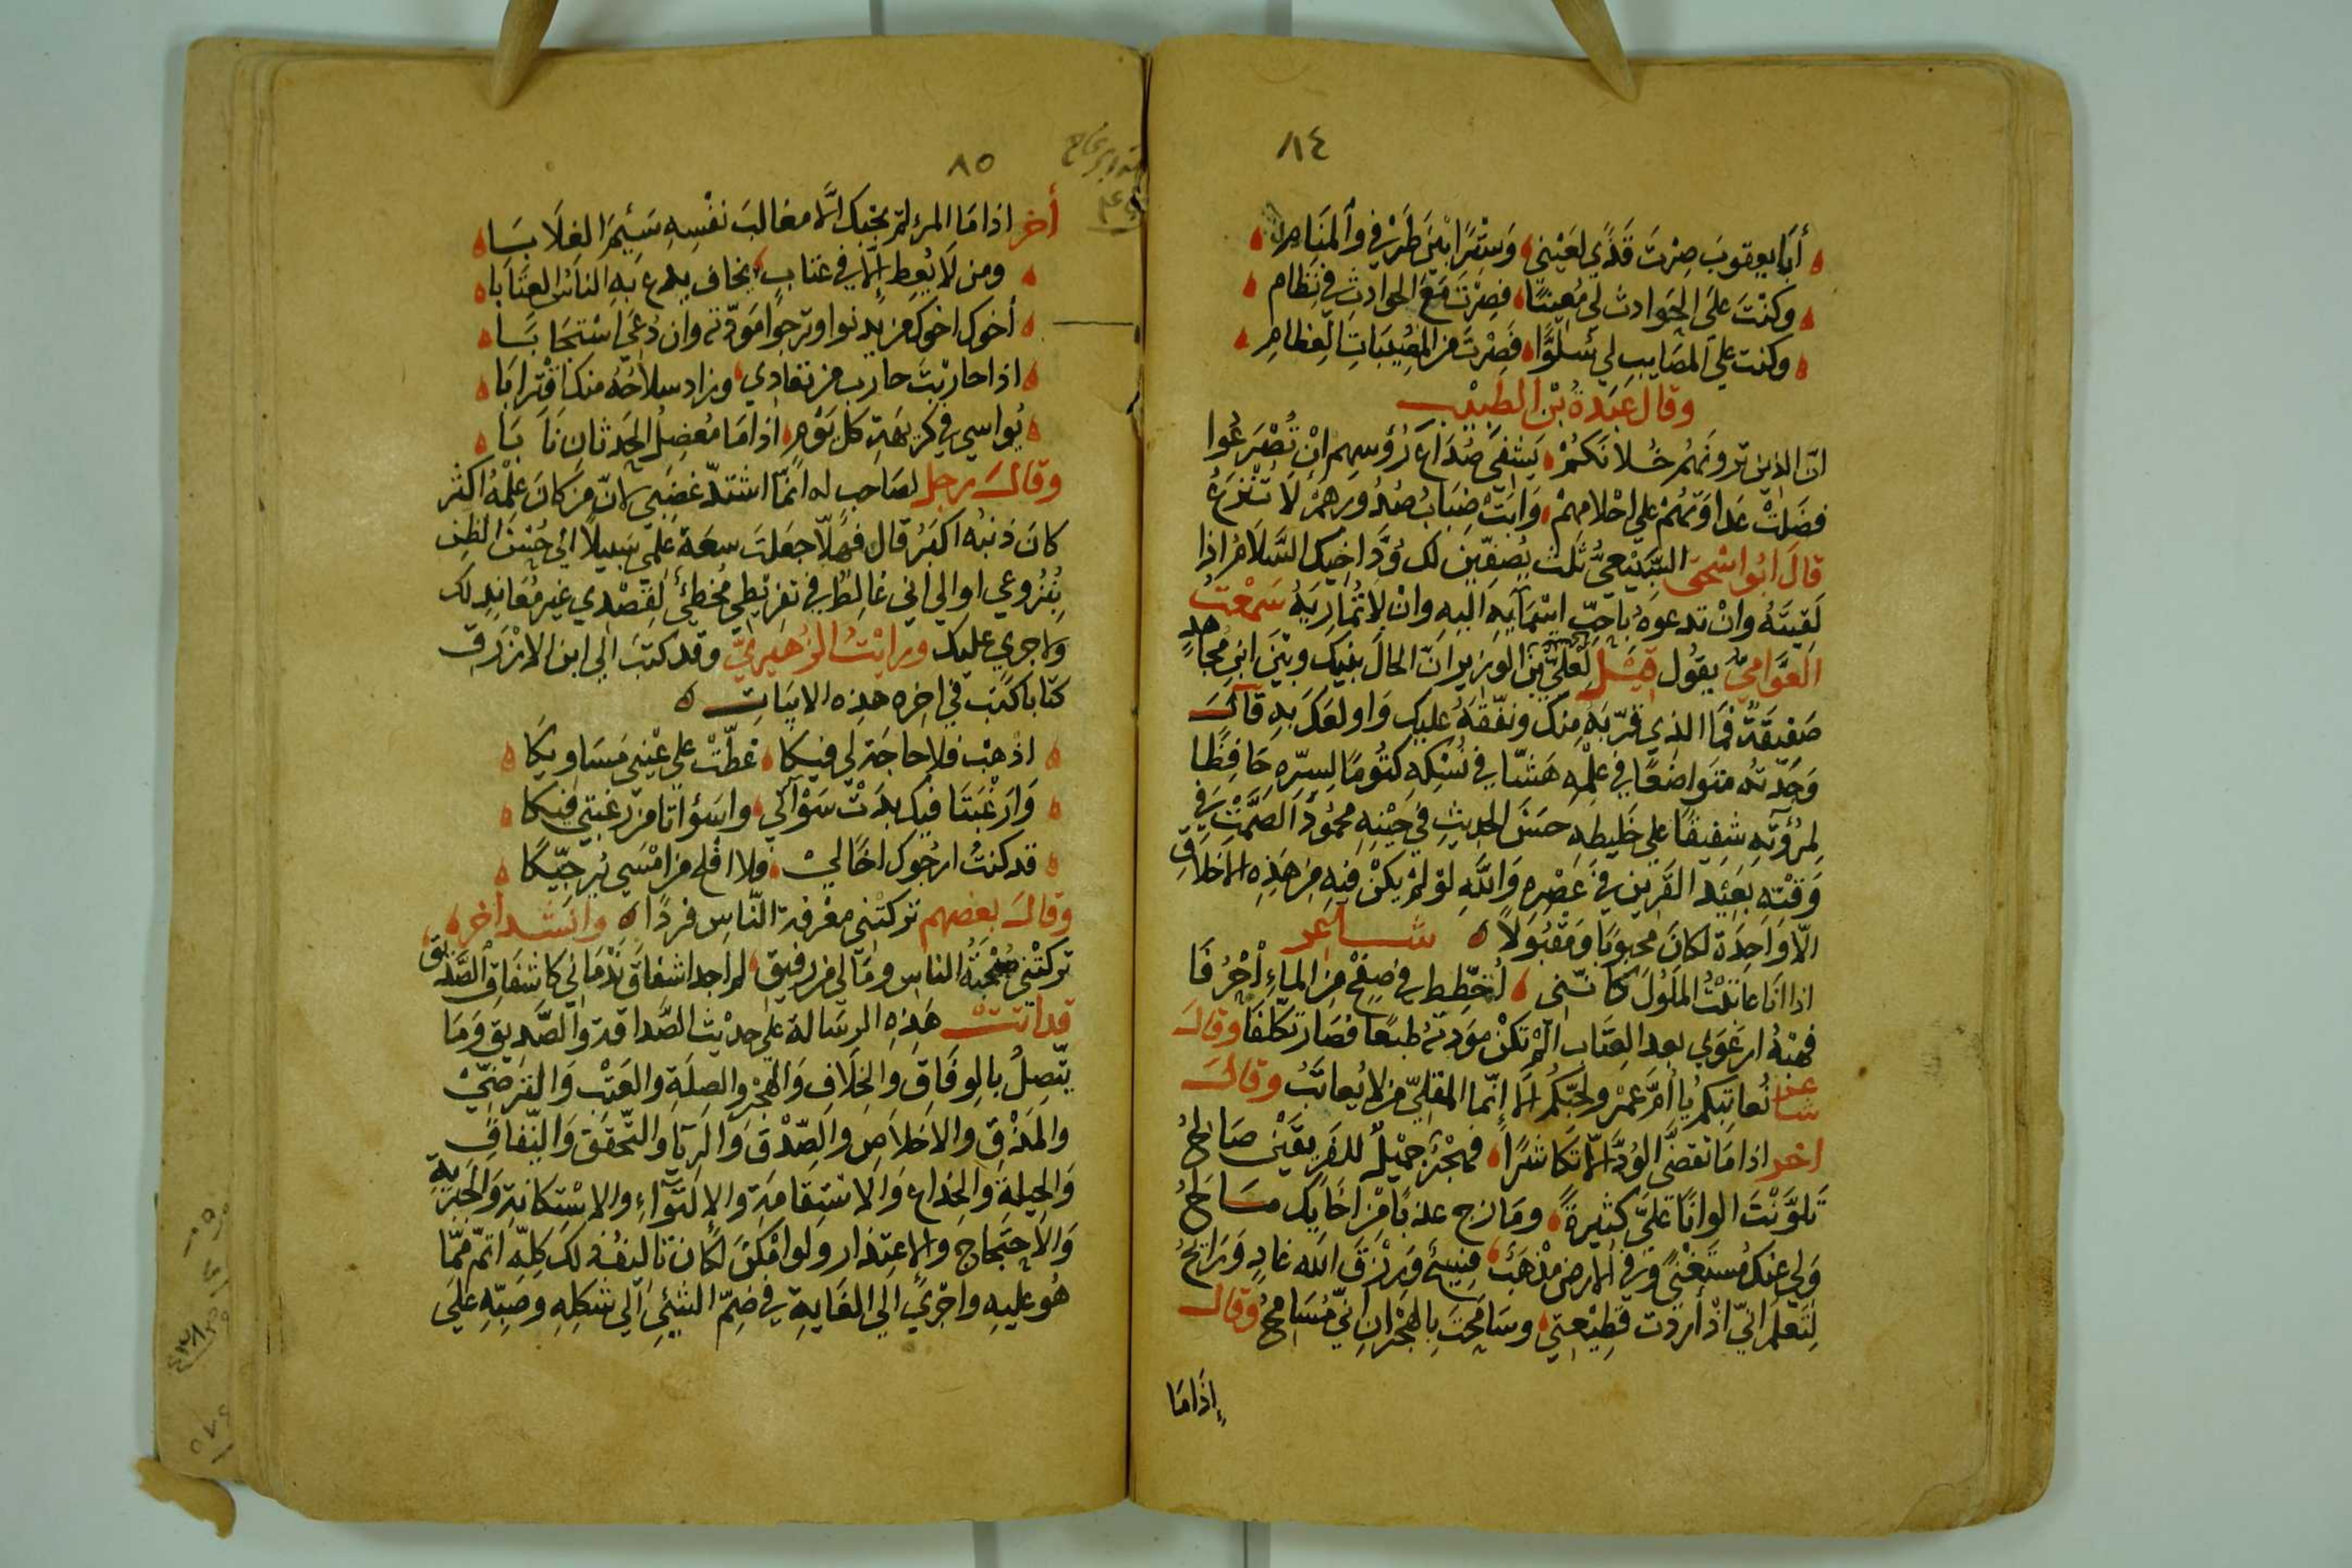 ٨٤
أبا يعقوب صِرْتَ قَذًي لعَيْني وَسِتْرًا بَيْنَ طَرْفي والمَنَام
وكنْتَ علَي الحَوادث لي مُعِينًا فصِرْتَ مَعَ الحوادث في نِظام
وكنت علي المصَايب لي سُلوًّا فَصِرْتَ من المُصِيبَاتِ العِظامِ
وقال عَبَدةُ بْن الطبيب
انّ الذين ترونَهُم خُلانَكُمْ يَشفي صُدَاعَ رُؤسِهم انْ تُصْرَعُوا
فضَلتْ عَداوتهُم علي احْلامهِمْ وَابَتْ ضِبَابُ صُدُورهمْ لَا تُنْزَعُ
قالَ ابُو اسْحَقَ السَّبيْعيُّ ثَلث يُصَفّينَ لك وُدَّ اخيك السَّلامُ اذا
لَقيتَهُ وانْ تدعوهُ باحبّ اسْمَآيهِ اليهِ وانْ لا تُمَاريَهُ سَمْعتُ
العَوَّاميّ يقُول قيْل لعَليّ بن عيسى الوزير انّ الحالَ بينك وبيْنَ ابن مُجاهدٍ
صَفيقَةٌ فما الذي قرّبَهُ منك ونفّقَهُ عليك وَاولعَكَ بهِ قالَ
وَجَدّته متوَاضعًا في علْمهِ هَشّا في نُسْكه كتُومًا لسِرّهِ حَافِظًا
لمرُوَّتهِ شفيقًا علي خَليطهِ حسَنَ الحديثِ في حَيْنهِ محمُودَ الصَّمْتِ في
وَقْتهِ بعَيْد القرَين في عَصْرهِ وَاللّهِ لوْ لمْ يكنْ فيْهِ من هَذِه الاخلاقِ
الّا وَاحِدَة لكانَ محبوبًا وَمَقْبُولاً شاعر
اذا انَا عاتَبْتُ المَلُولَ كأنّني اُخَطِّط في صفْحٍ من الماءِ احْرُفَا
فهَبْهُ ارعَوَي بعد العِتَاب الَمْ تكنْ مودتهُ طبعًا فصَار تكلفَا وقالَ
شاعر نُعاتبكم يا أمَّ عَمْرٍ ولحبّكُم الا إنّما المقليّ من لا يُعاتَبُ وقالَ
اخر اذا مَا تقضَّي الوُدّ الّا تَكاشرًا فهجْرٌ جميْلٌ للفَريقَيْن صَالحُ
تَلوَّنْتَ الوانًا عَليَّ كثيرةً ومَازج عذبًا مِنْ اخَايك مَالحُ
وَلي عنْك مُستَغْنًي وفي الارض مذْهَبٌ فسيحٌ وَرزْق الله غادٍ وَرَايحُ
لتَعلَم انّي اذْ أرَدْت قطِيْعتي وسَامَحتَ بالهجْرانِ انّي مُسَامحُ وقالَ
إذَا مَا
٨٥
أخر اذا مَا المرء لمْ يحْببك الّا مغالبَ نفْسِهِ سَئِمَ الغِلَابَا
ومن لَا يُعطِ إلّا في عتابٍ يخاف يدع بهِ النَاسُ العتَابَا
أخوك اخوك من يدنوا وترجُوا مَودّته وان دُعيَ اسْتَجَابَا
اذا حارَبْتَ حاربَ من تعَادي وزاد سلاحُهُ منك اقْترابَا
يُواسي في كريْهَتهِ كل يَوْمٍ اذا مَا مُعْضِلُ الحَدَثَانِ نَابَا
وقالَ رجل لصَاحب له انمَّا اشْتدّ غضَبي لانّ منْ كانَ علْمُهُ اكثر
كانَ ذنبُه اكبَرُ قال فَهَلّا جعَلتَ سعَةَ علمي سَبيلاً الي حُسْنِ الظنِ
بنُزُوعي او الي اني غَالطٌ في تفريْطي مُخطئ لقَصْدي غيْر مُعَاندٍ لك
ولا جري عليك ورايْتُ الزُهَيريّ وقد كتبَ الي ابن الازْرَق
كتَابا كتَبَ في اخرهِ هذِه الابيَاتِ
اذْهبْ فلا حاجَةَ لي فيكا غطّتْ علي عيْني مَسَاويكَا
وَارَغْبَتَا فيك بدَتْ سَوْآتي واسَوْاتا من رغبَتي فيكا
قد كنتُ ارجُوك اخًا ليْ فلا افلح من امْسَي يُرجّيكَا
وقالَ بعضهم تركتْني معْرفة النّاسِ فردًا وانشد أخر
تركتْني صُحْبَةُ الناسِ ومَالي من رفيق لم اجد اشفاقَ نَدْمَاني كاشفَاق الصَّديق
قد اتَتْ هَذِهِ الرسَالة علي حديْث الصَّداقة والصَّديق وَمَا
يتّصِلُ بالوفَاق والخلَاف وَالهَجْر والصلَةِ والعتْب وَالترَضّيْ
والمَذْق والاخلاص والصّدْق وَالريَآ والتّحقق وَالنّفَاق
وَالحيلة وَالخدَاع وَالاستقَامَةِ والالتوَاءِ والاسْتكانة
وَالاحتجاج والاعتذار ولوا امْكنَ لكانَ تاليفُ ذلك كلّهِ اتمّ ممّا
هُو عليهِ واجْري الي الغَايةِ في ضمّ الشئ الي شكلهِ وصبّهِ عليَ